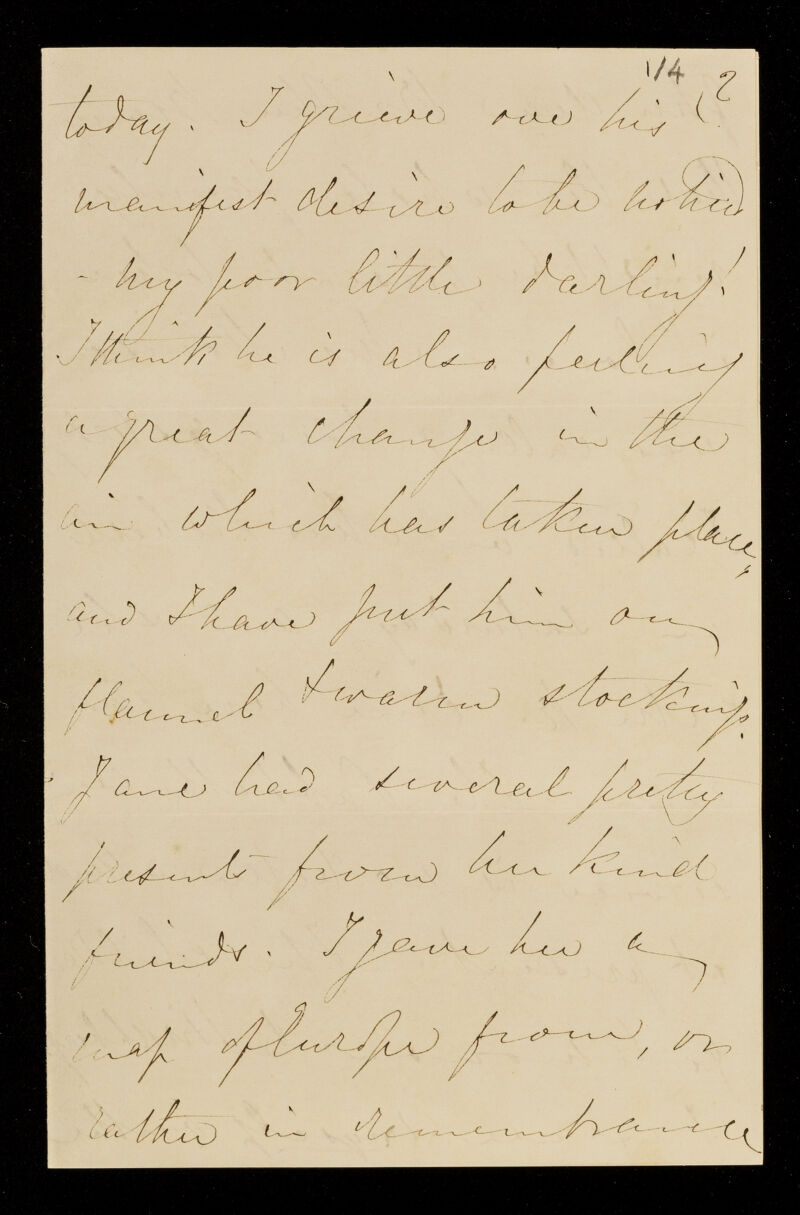 1/4 2
today. I grieve over his
manifest desire to be noticed
- my poor little darling!
I think he is also feeling
a great change in the
air which has taken place,
and I have put him on
flannel & warm stockings.
Jane had several pretty
presents from her kind
friends. I gave her a
map of Europe from, or
rather in remembrance